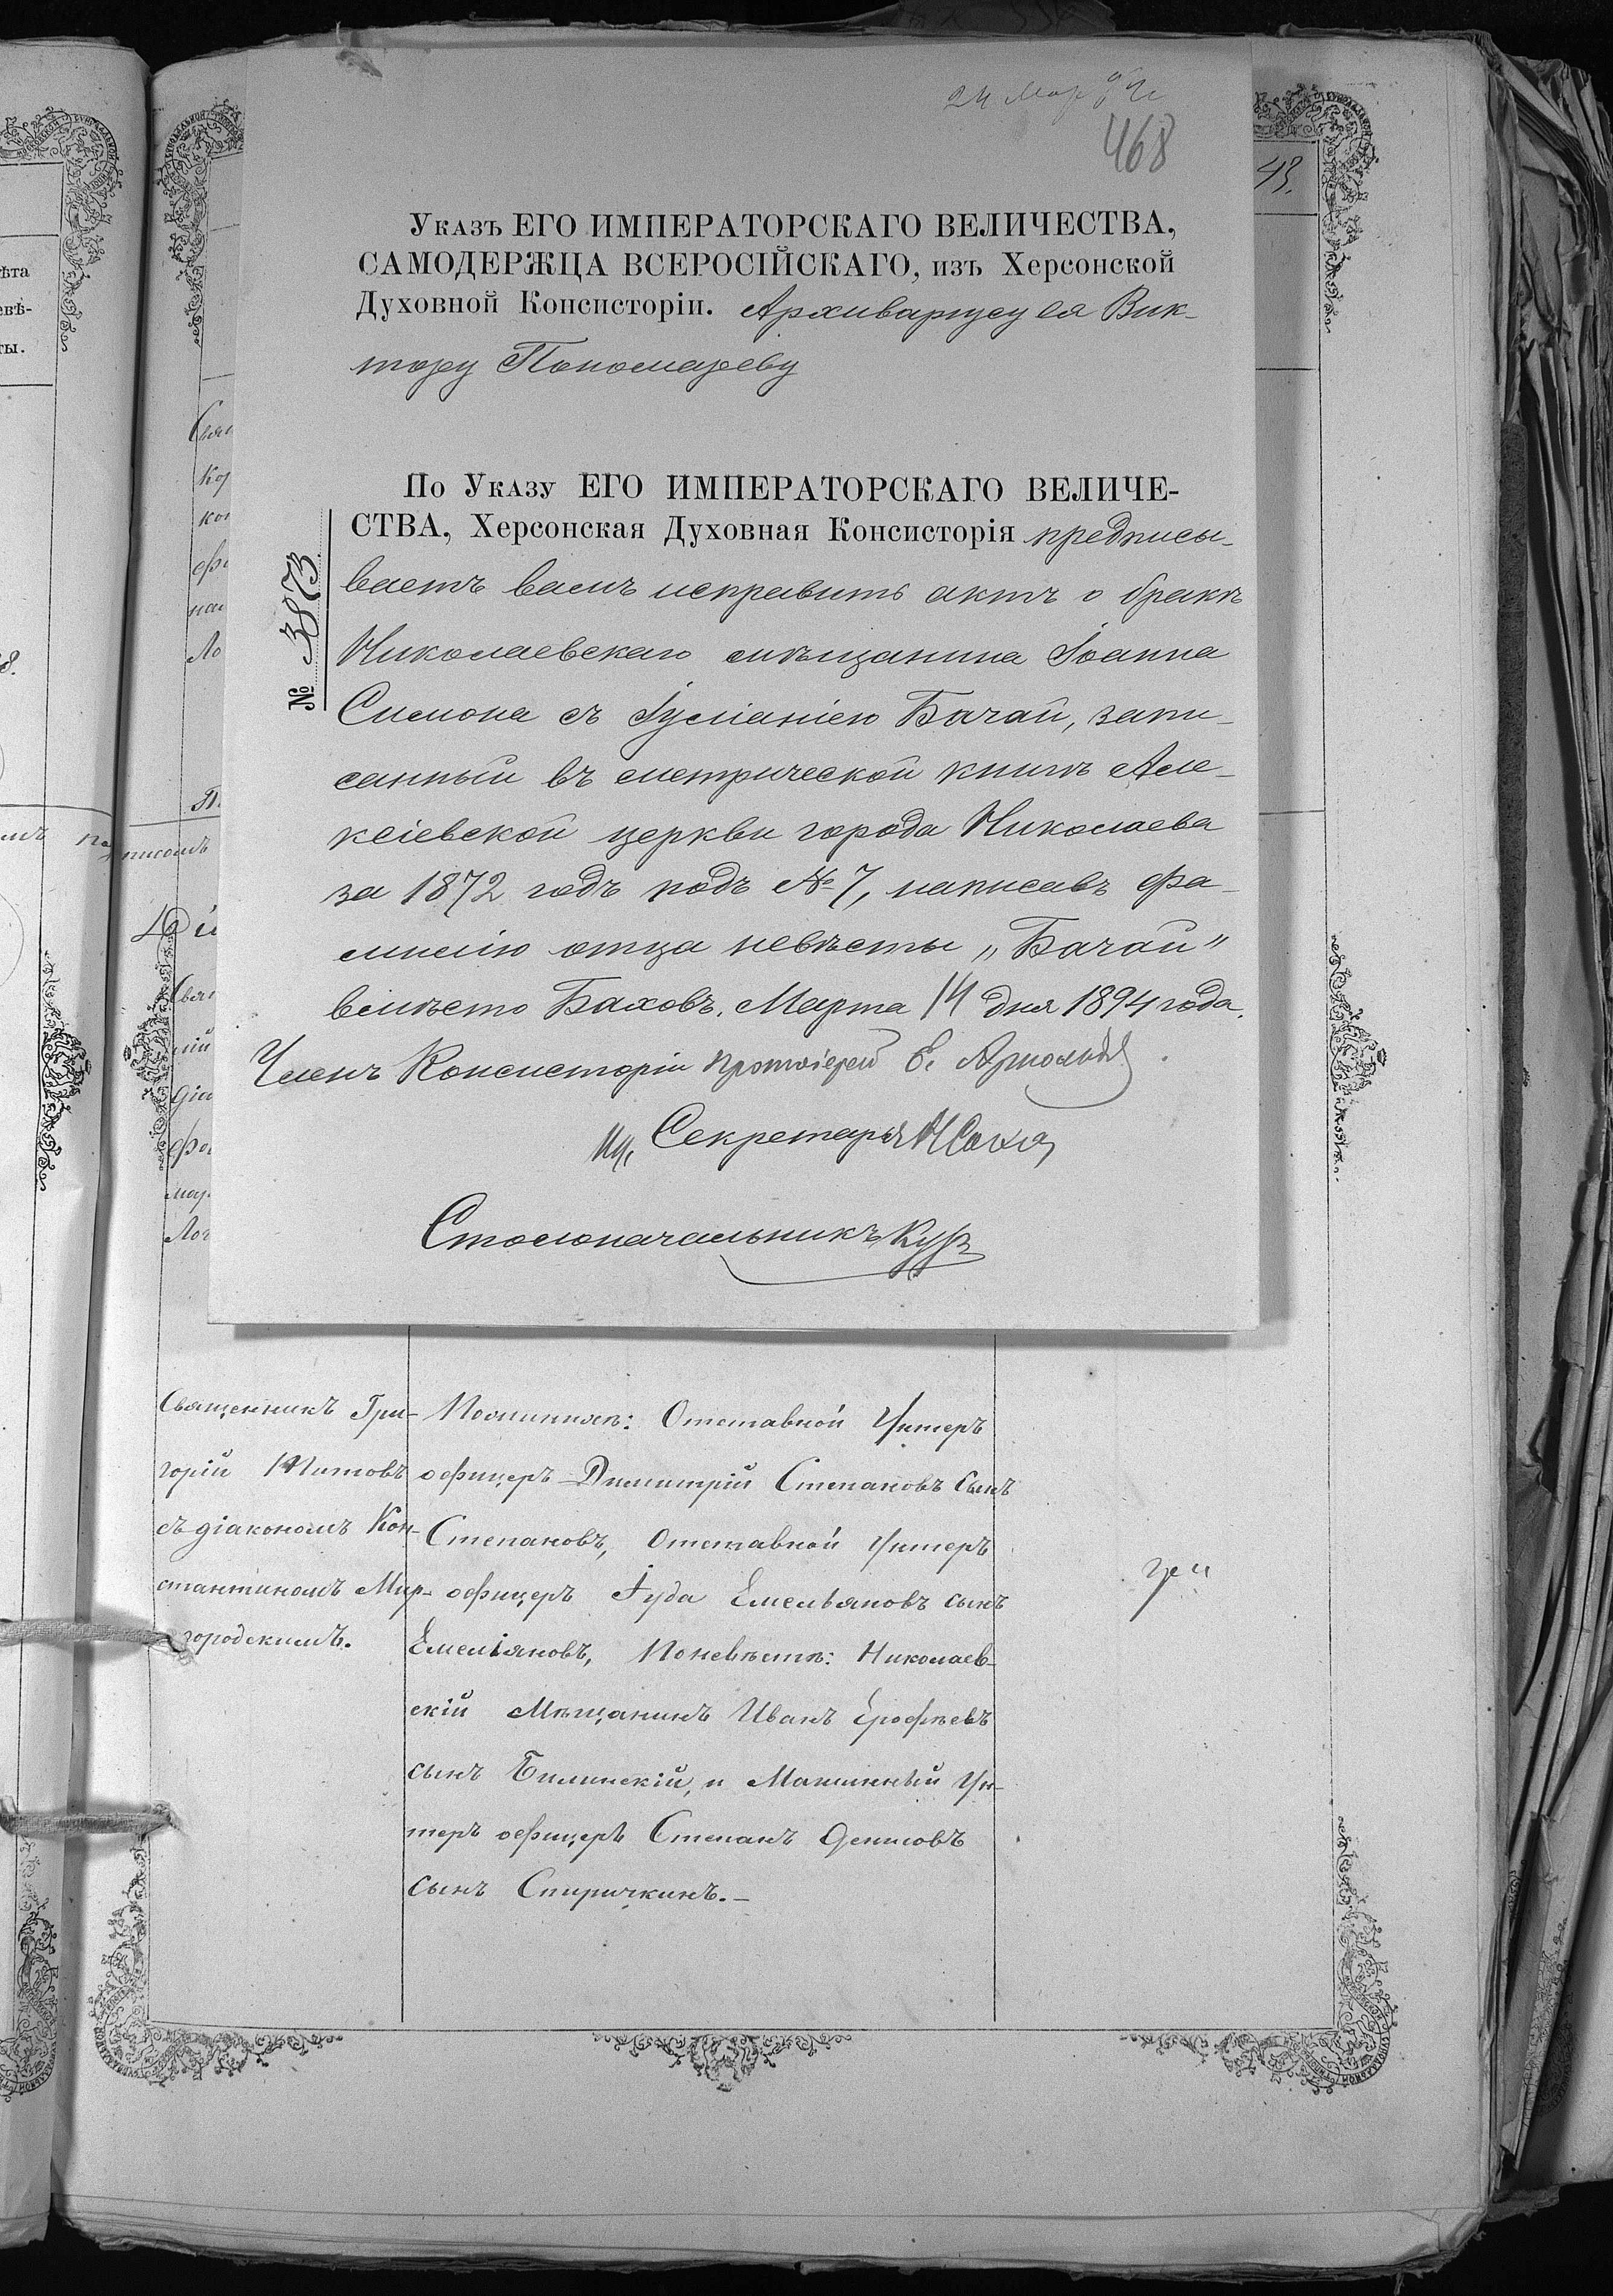 24 Мар
468
43.
Указъ ЕГО ИМПЕРАТОРСКАГО ВЕЛИЧЕСТВА,
САМОДЕРЖЦА ВСЕРОСІЙСКАГО, изъ Херсонской
Духовной Консисторіи. Архиваріусу ея Вик-
тору Пономареву
По Указу ЕГО ИМПЕРАТОРСКАГО ВЕЛИЧЕ-
СТВА, Херсонская Духовная Консисторія предписы-
ваетъ вамъ исправить актъ о бракѣ
Николаевскаго мѣщанина Іоанна
Симона съ Іуліаніею Бачай, запи-
санный въ метрической книгѣ Але-
ксіевской церкви города Николаева
за 1872 годъ подъ № 7, написавъ фа-
милію отца невѣсты „Бачай"
вмѣсто Баховъ. Марта 14 дня 1894 года.
№ 3873
Членъ Консисторіи Протоіерей Е. Арнольдъ
Секретарь
Столоначальникъ
Священникъ Гри-
горій Титовъ
съ діакономъ Кон-
стантиномъ Мир-
городскимъ.
Поженихѣ: Отставной Унтеръ
офицеръ Димитрій Степановъ сынъ
Степановъ, Отставной Унтеръ
офицеръ Іуда Емельяновъ сынъ
Емеліяновъ, Поневѣстѣ: Николаев-
скій Мѣщанинъ Иванъ Ерофѣевъ
сынъ Билинскій, и Машинный Ун-
теръ офицеръ Степанъ Денисовъ
сынъ Спиричкинъ.-
ѣта
евѣ-
ты.